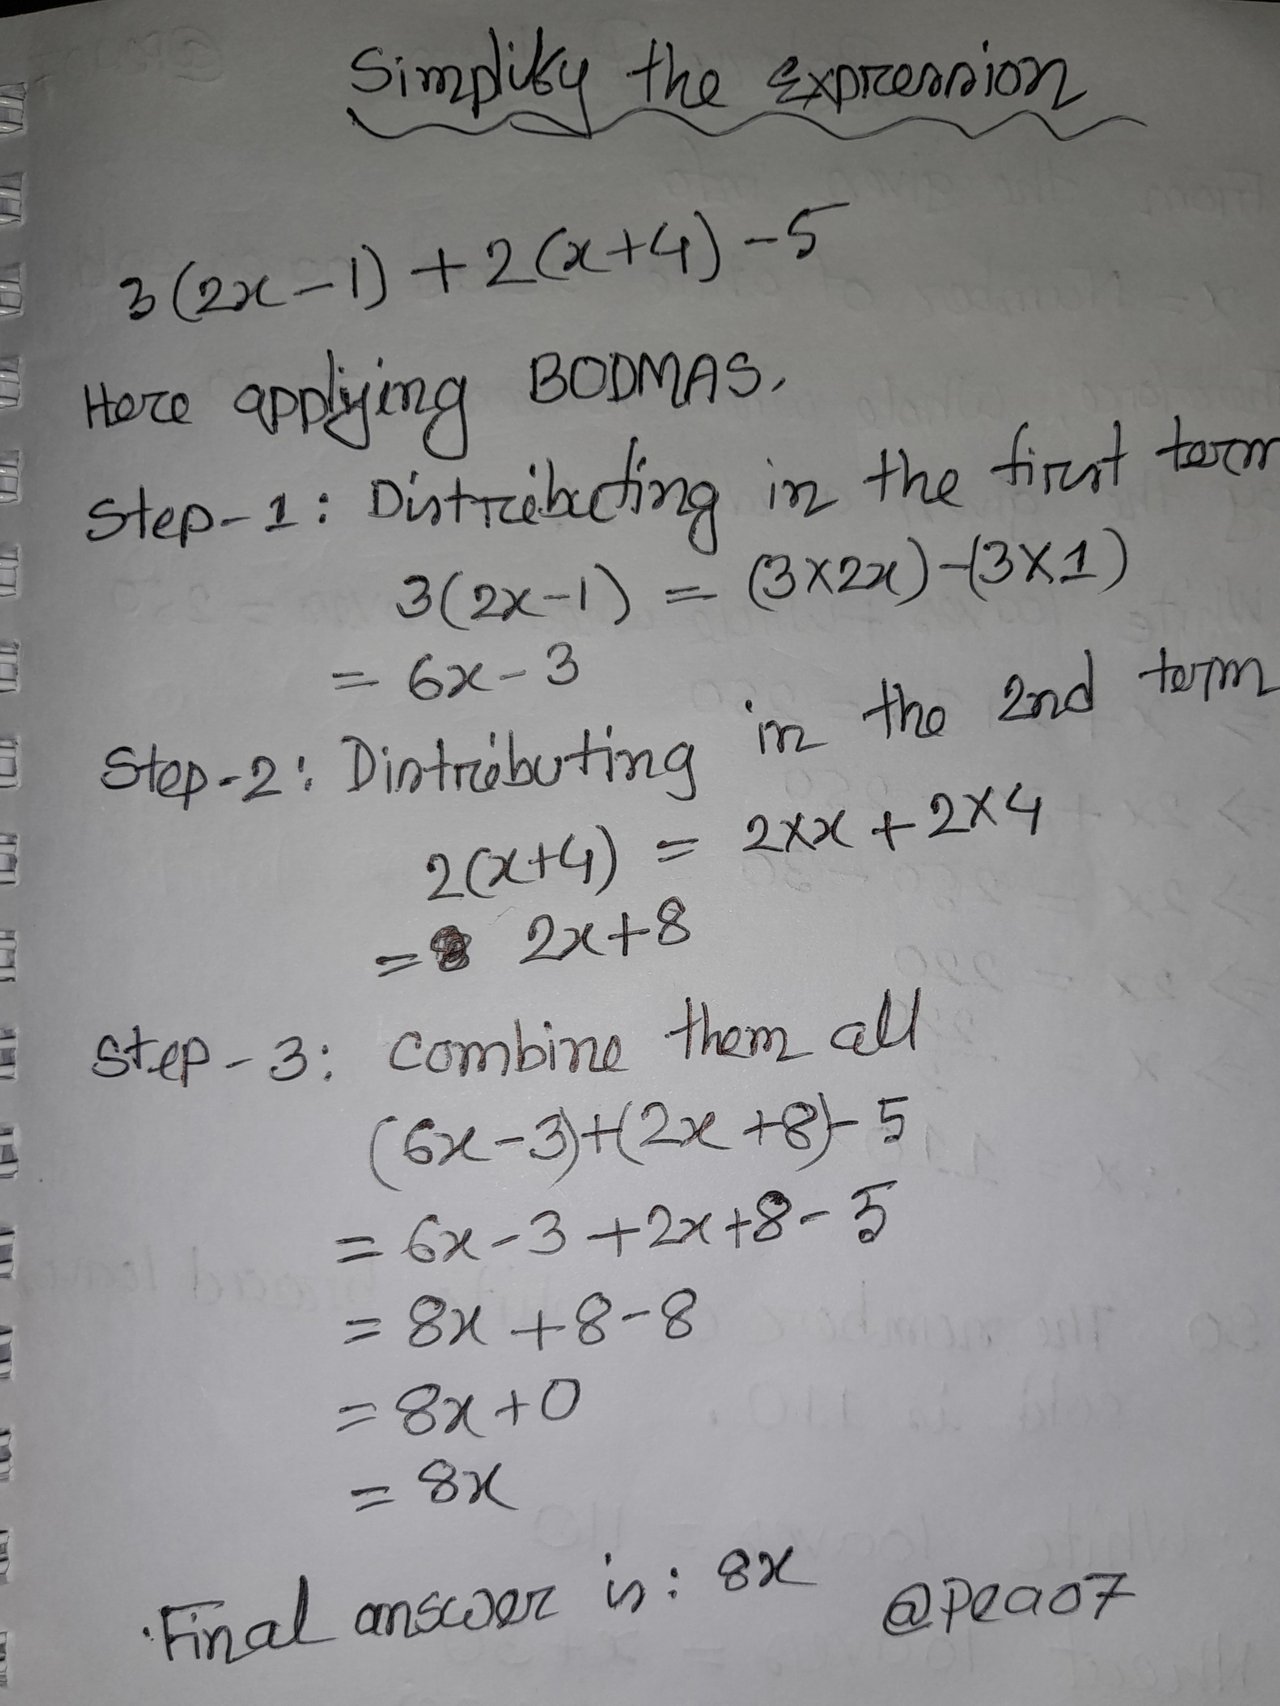 Simplify the Expression
3(2x-1)+2(x+4)-5
Here applying BODMAS.
Step-1: Distributing in the first term
3(2x-1) = (3×2x)-(3×1)
= 6x-3
Step-2: Distributing in the 2nd term
2(x+4) = 2×x+2×4
= 2x+8
Step-3: Combine them all
(6x-3)+(2x+8)-5
= 6x-3+2x+8-5
= 8x+8-8
= 8x+0
= 8x
Final answer is: 8x
@Pea07